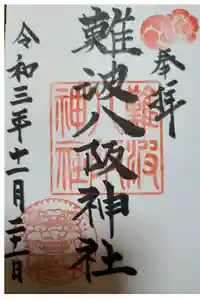 奉拝
難波八阪神社
令和三年十一月二十二日
難波
八阪
神社